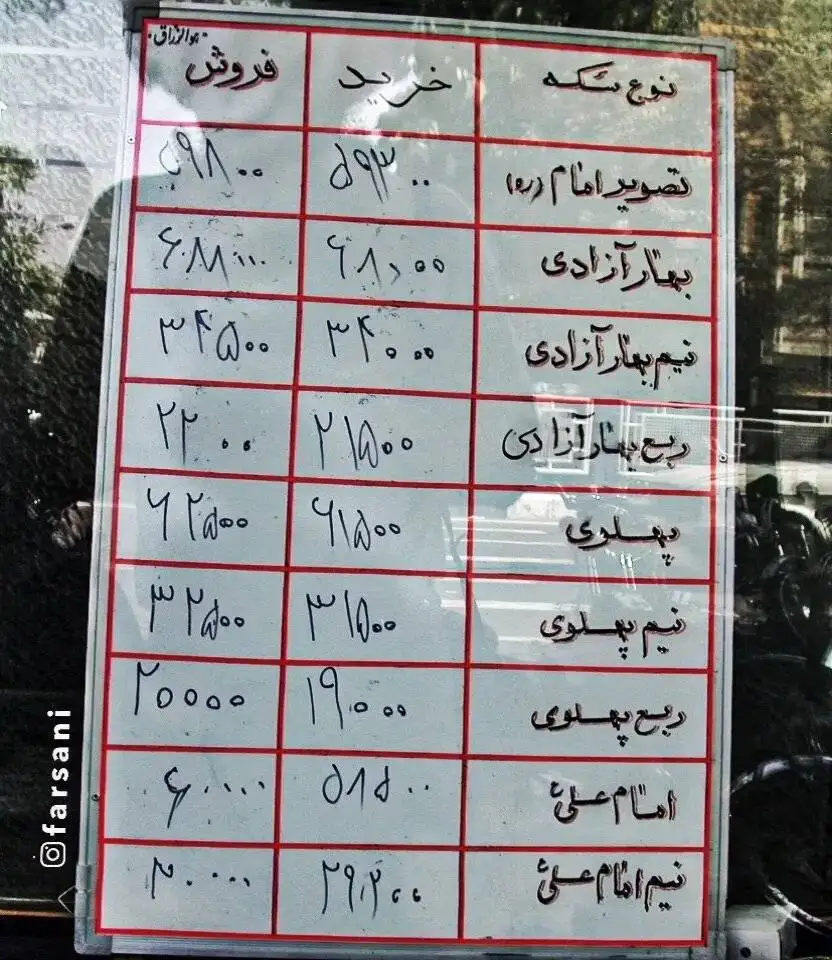 هوالرزاق
نوع سکه خرید فروش
تصویر امام (ره) ۵۹۳۰۰ ۵۹۸۰۰
بهار آزادی ۶۸۰۰۰
نیم بهار آزادی ۳۴۰۰۰ ۳۴۵۰۰
ربع بهار آزادی ۲۱۵۰۰ ۲۲۰۰۰
پهلوی ۶۱۵۰۰ ۶۲۵۰۰
نیم پهلوی ۳۱۵۰۰ ۳۲۵۰۰
ربع پهلوی ۱۹۰۰۰ ۲۰۰۰۰
امام علی ع ۵۸۵۰۰ ۶۰۰۰۰
نیم امام علی ع ۲۹۲۰۰ ۳۰۰۰۰
farsani